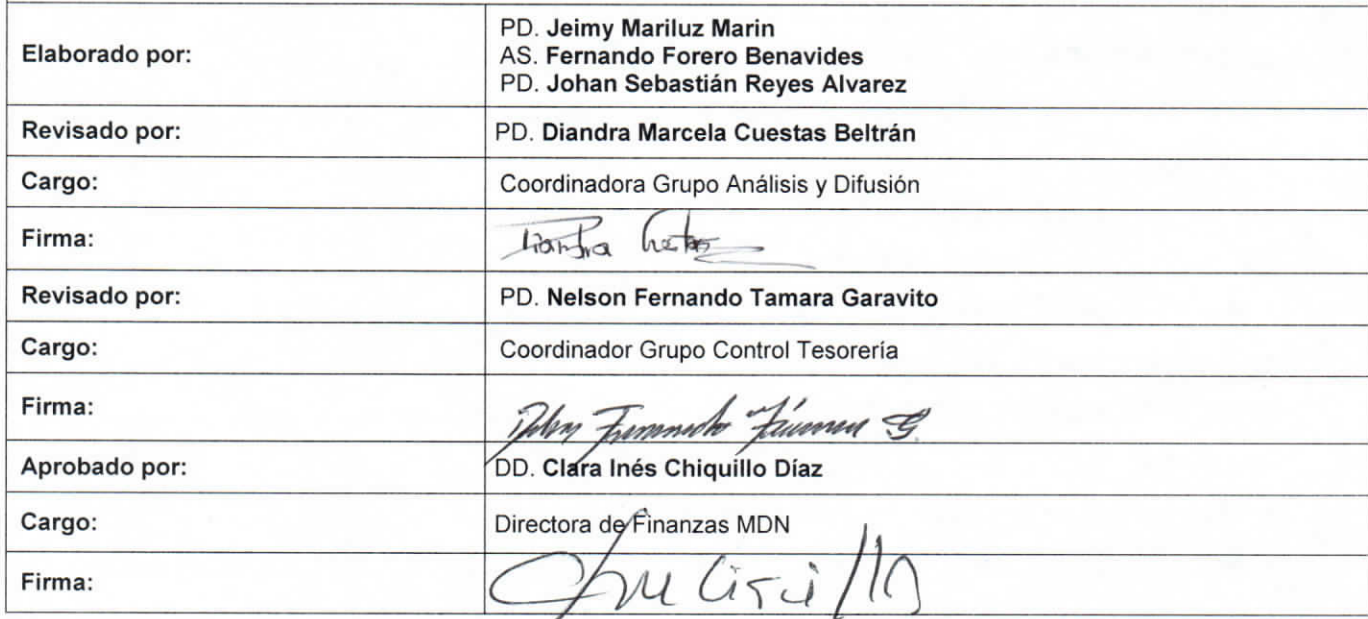 Elaborado por:
PD. Jeimy Mariluz Marin
AS. Fernando Forero Benavides
PD. Johan Sebastián Reyes Alvarez
Revisado por:
PD. Diandra Marcela Cuestas Beltrán
Cargo:
Coordinadora Grupo Análisis y Difusión
Firma:
Diandra Cuestas
Revisado por:
PD. Nelson Fernando Tamara Garavito
Cargo:
Coordinador Grupo Control Tesorería
Firma:
Aprobado por:
DD. Clara Inés Chiquillo Díaz
Cargo:
Directora de Finanzas MDN
Firma: